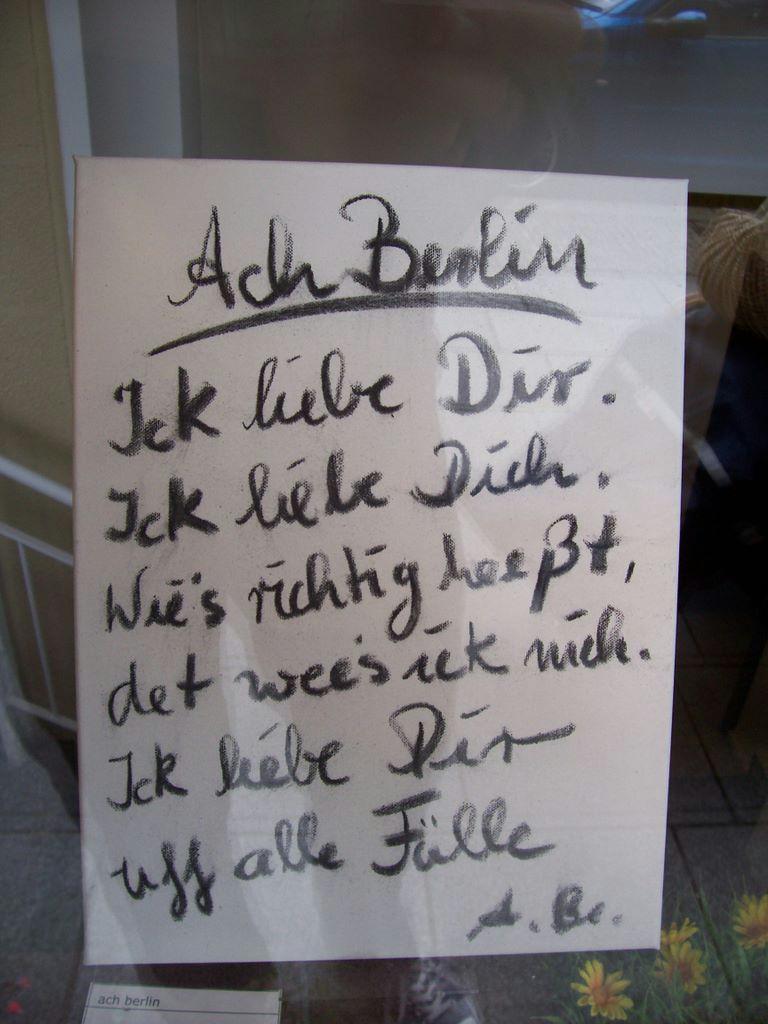 Ach Berlin
Ick liebe Dir.
Ick liebe Dich.
Wie's richtig heeßt,
det wees ick nich.
Ick liebe Dir
uff alle Fälle
A. Be.
ach berlin